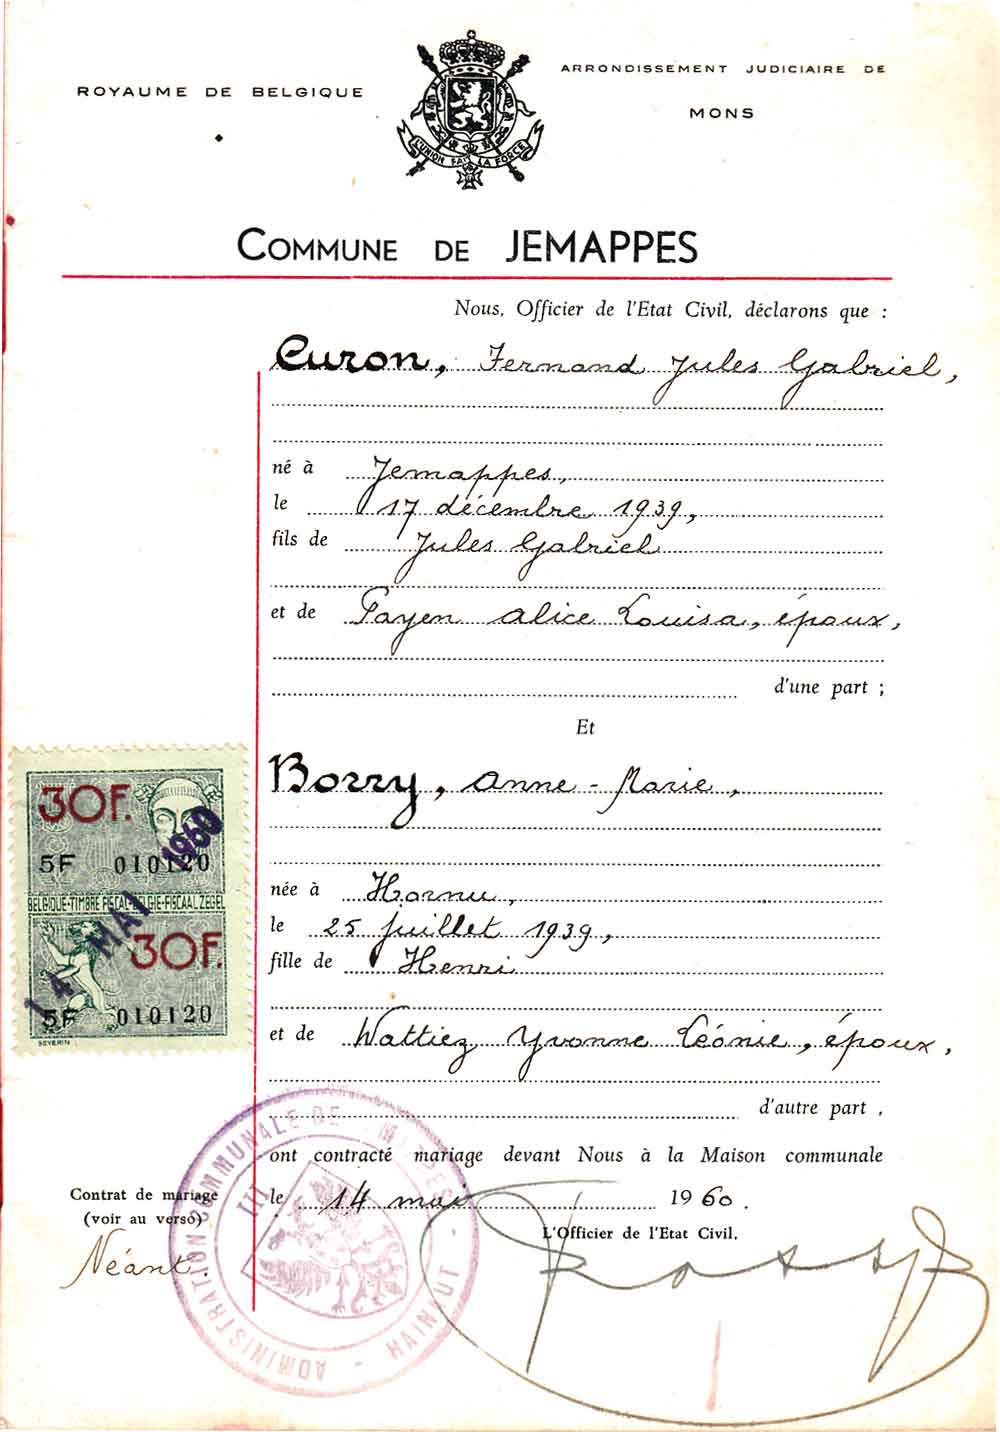 ROYAUME DE BELGIQUE
ARRONDISSEMENT JUDICIAIRE DE
MONS
L'UNION FAIT LA FORCE
COMMUNE DE JEMAPPES
Nous, Officier de l'Etat Civil, déclarons que :
Curon, Fernand Jules Gabriel,
né à Jemappes,
le 17 décembre 1939,
fils de Jules Gabriel
et de Payen Alice Louisa, époux,
d'une part ;
Et
Borry, Anne-Marie,
née à Hornu,
le 25 juillet 1939,
fille de Henri
et de Wattiez Yvonne Léonie, époux,
d'autre part,
ont contracté mariage devant Nous à la Maison communale
le 14 mai 1960.
L'Officier de l'Etat Civil,
Contrat de mariage
(voir au verso)
Néant.
30F.
5F 010120
BELGIQUE-TIMBRE FISCAL-BELGIE-FISCAAL ZEGEL
30F.
5F 010120
SEVERIN
14 MAI 1960
ADMINISTRATION COMMUNALE DE JEMAPPES - HAINAUT -
III